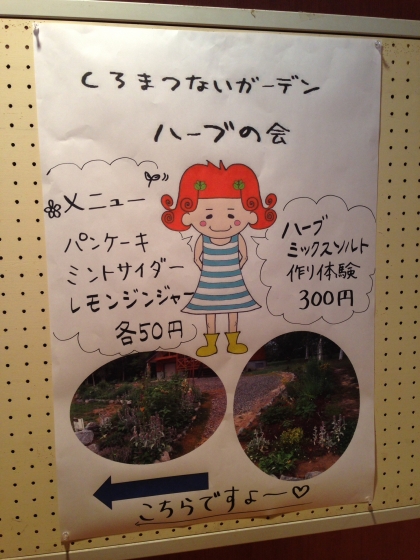 くろまつないガーデン
ハーブの会
メニュー
パンケーキ
ミントサイダー
レモンジンジャー
各50円
ハーブ
ミックスソルト
作り体験
300円
こちらですよー♡